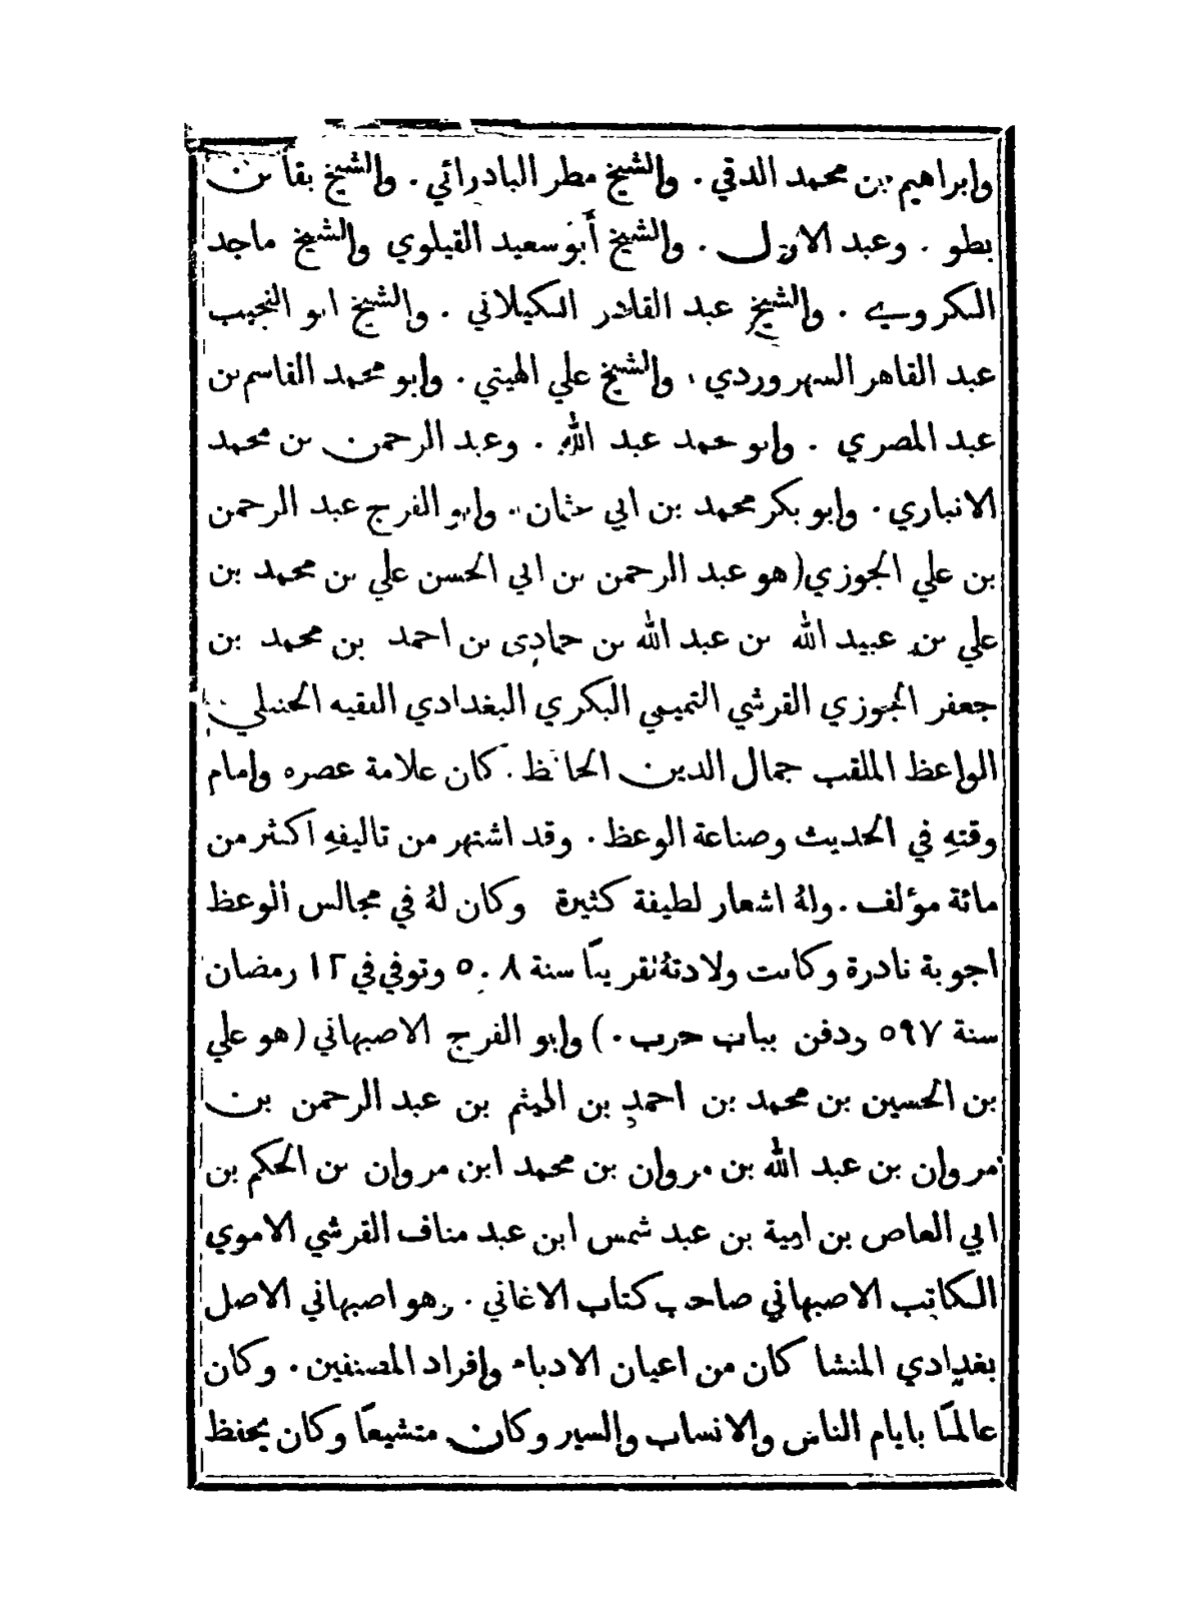 وابراهيم بن محمد الدقي . والشيخ مطر البادرائي . والشيخ بقا بن
بطو . وعبد الاول . والشيخ أبو سعيد القيلوي والشيخ ماجد
الكروي . والشيخ عبد القادر الكيلاني . والشيخ ابو النجيب
عبد القاهر السهروردي . والشيخ علي الهيتي . وابو محمد القاسم بن
عبد المصري . وابو حمد عبد الله . وعبد الرحمن بن محمد
الانباري . وابو بكر محمد بن ابي عثمان . وابو الفرج عبد الرحمن
بن علي الجوزي (هو عبد الرحمن بن ابي الحسن علي بن محمد بن
علي بن عبيد الله بن عبد الله بن حمادى بن احمد بن محمد بن
جعفر الجوزي القرشي التميمي البكري البغدادي الفقيه الحنبلي
الواعظ الملقب جمال الدين الحافظ . كان علامة عصره وامام
وقتهِ في الحديث وصناعة الوعظ . وقد اشتهر من تاليفهِ اكثر من
مائة مؤلف . ولهُ اشعار لطيفة كثيرة وكان لهُ في مجالس الوعظ
اجوبة نادرة وكانت ولادتهُ تقريبًا سنة ٥٠٨ وتوفي في ١٢ رمضان
سنة ٥٩٧ ودفن بباب حرب .) وابو الفرج الاصبهاني (هو علي
بن الحسين بن محمد بن احمد بن الهيثم بن عبد الرحمن بن
مروان بن عبد الله بن مروان بن محمد ابن مروان بن الحكم بن
ابي العاص بن امية بن عبد شمس ابن عبد مناف القرشي الاموي
الكاتب الاصبهاني صاحب كتاب الاغاني . وهو اصبهاني الاصل
بغدادي المنشا كان من اعيان الادباء وافراد المصنفين . وكان
عالمًا بايام الناس والانساب والسير وكان متشيعًا وكان يحفظ